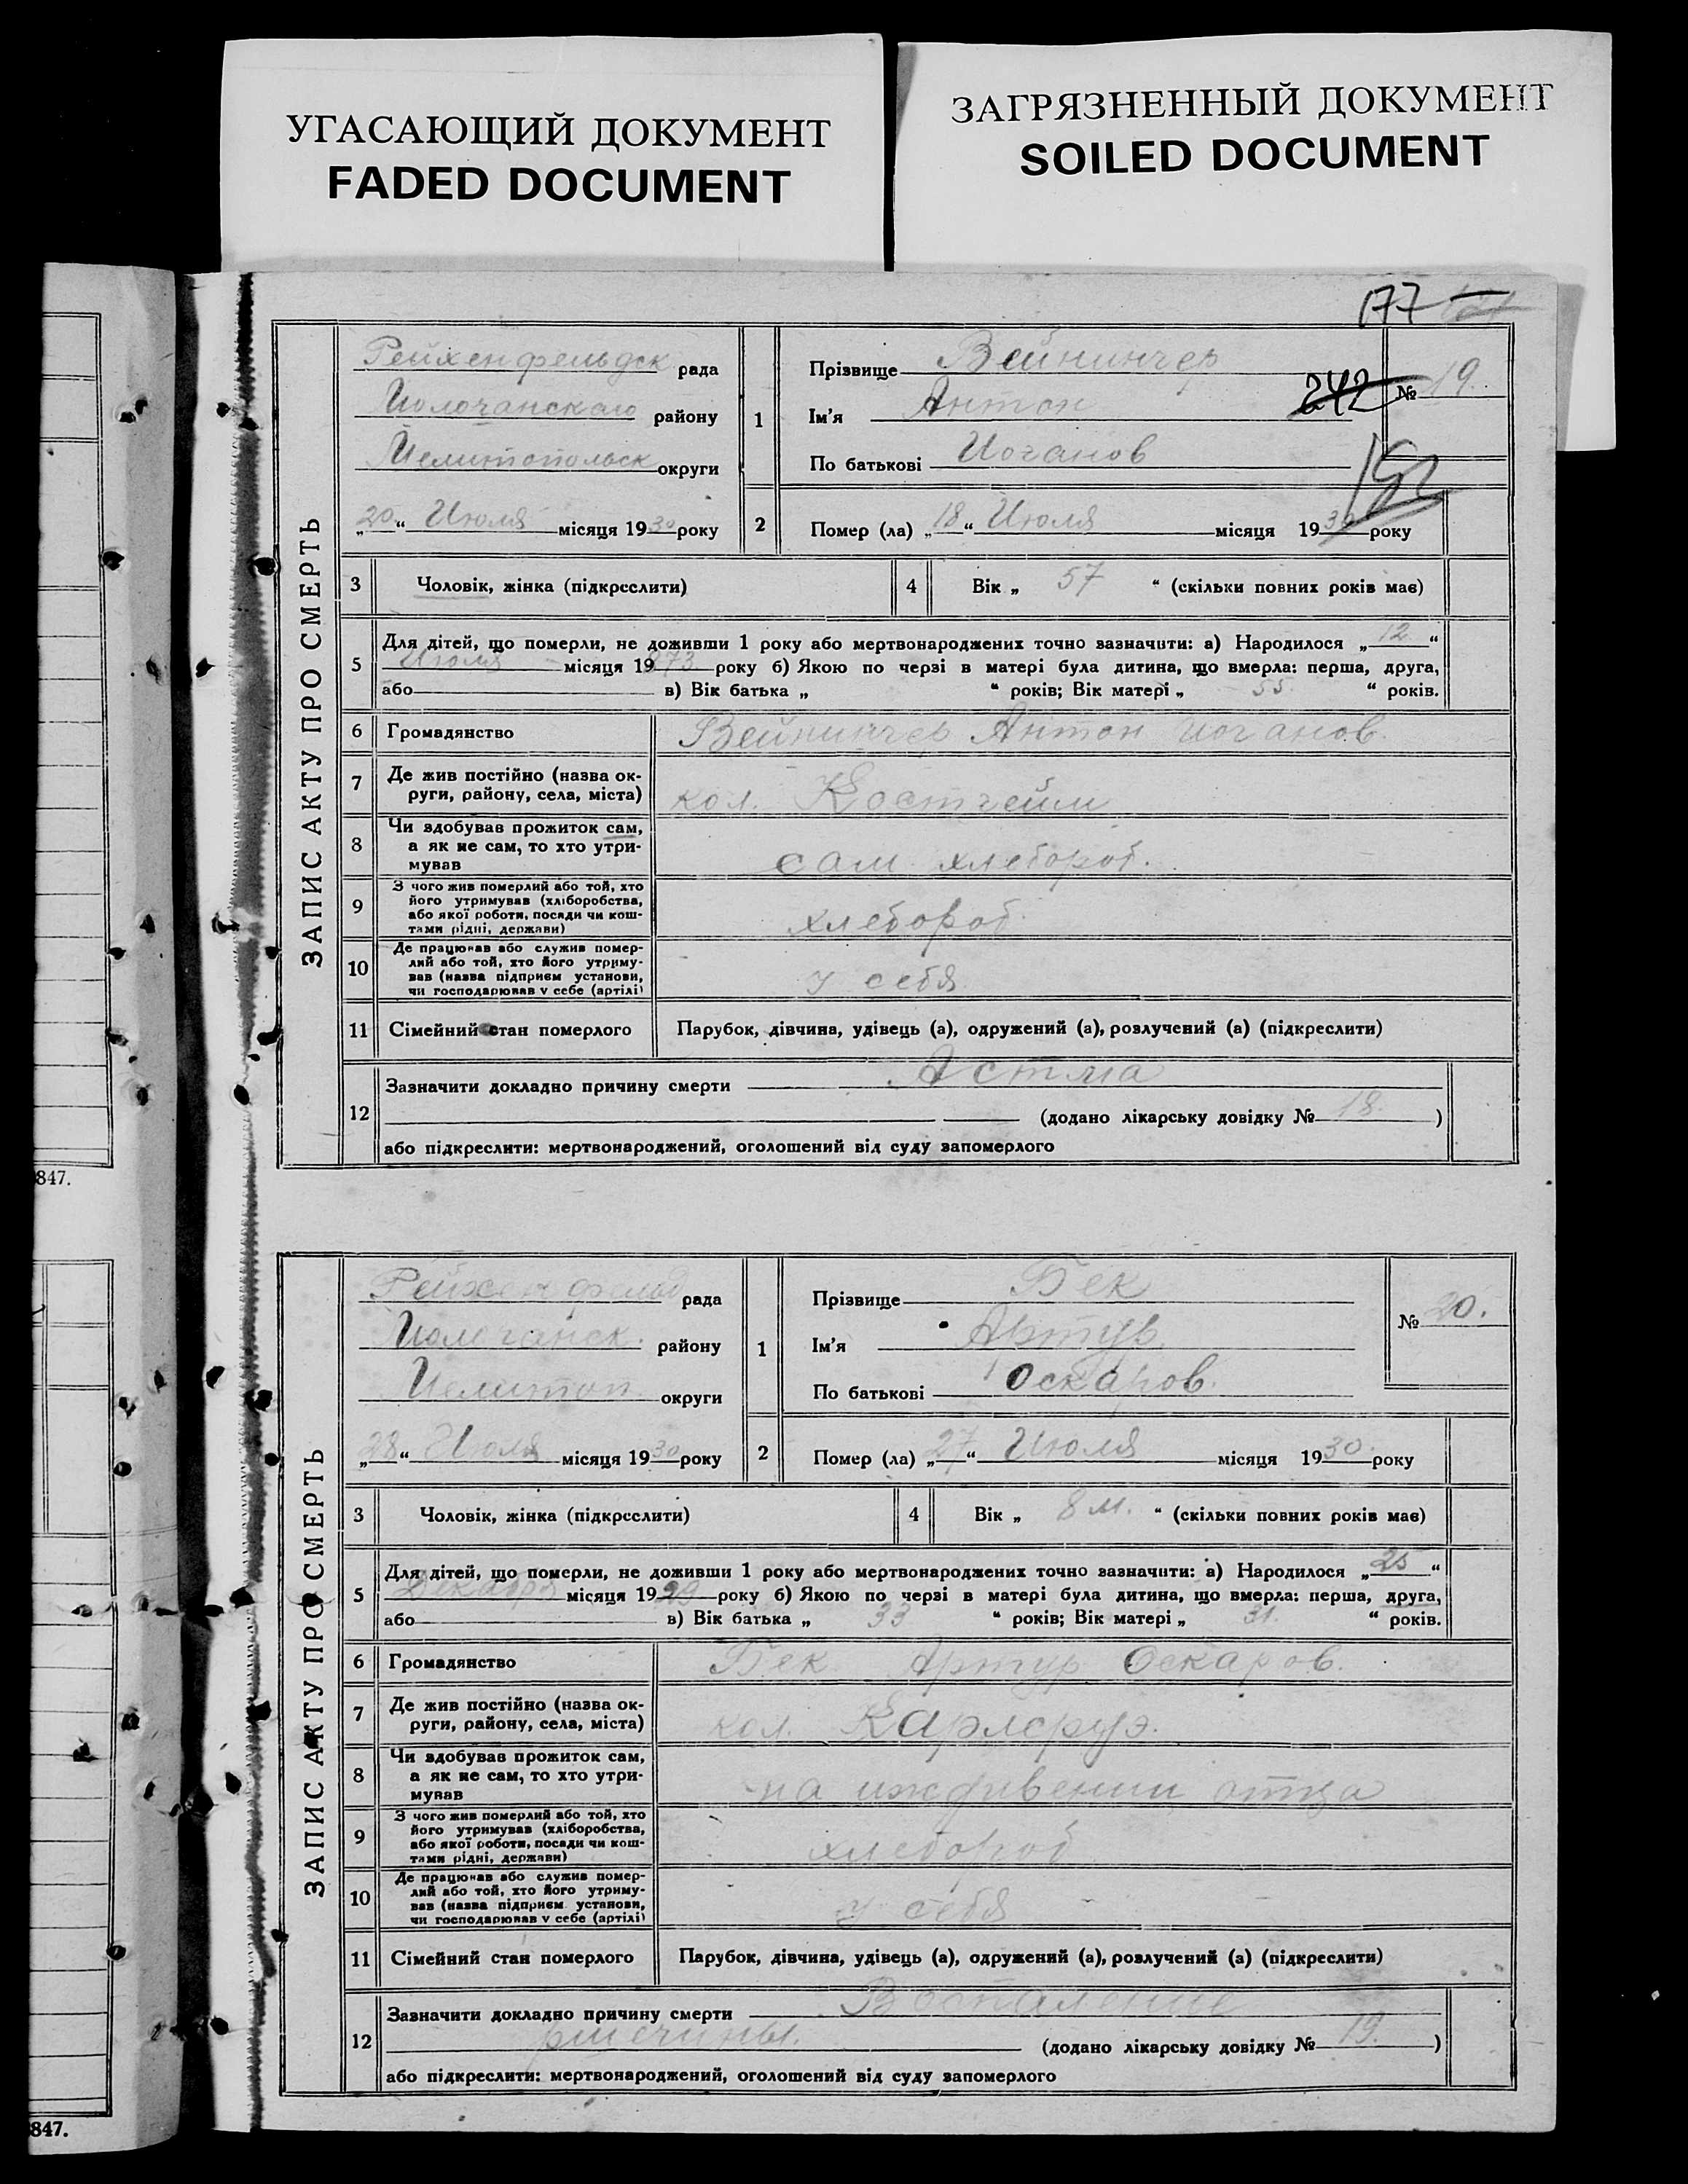 УГАСАЮЩИЙ ДОКУМЕНТ
FADED DOCUMENT
ЗАГРЯЗНЕННЫЙ ДОКУМЕНТ
SOILED DOCUMENT
177
ЗАПИС АКТУ ПРО СМЕРТЬ
Рейхенфельдск рада
Молочанскаго району
Мелитопольск округи
„20“ Июля місяця 1930 року
1
Прізвище Вейнингер
Ім'я Антон
По батькові Иоганов
242
№ 19.
2 Помер (ла) „18“ Июля місяця 1930 року
3 Чоловік, жінка (підкреслити)
4 Вік „ 57 “ (скільки повних років має)
5 Для дітей, що померли, не доживши 1 року або мертвонароджених точно зазначити: а) Народилося „12“
Июля місяця 19 873 року б) Якою по черзі в матері була дитина, що вмерла: перша, друга,
або в) Вік батька „ “ років; Вік матері „ 55. “ років.
6 Громадянство Вейнингер Антон Иоганов.
7 Де жив постійно (назва округи, району, села, міста) кол. Костгейм
8 Чи здобував прожиток сам, а як не сам, то хто утримував сам хлебороб.
9 З чого жив померлий або той, хто його утримував (хліборобства, або якої роботи, посади чи коштами рідні, держави) хлебороб.
10 Де працював або служив померлий або той, хто його утримував (назва підприєм установи, чи господарював у себе (артілі) у себя
11 Сімейний стан померлого Парубок, дівчина, удівець (а), одружений (а), розлучений (а) (підкреслити)
12 Зазначити докладно причину смерти Астма
(додано лікарську довідку № 18. )
або підкреслити: мертвонароджений, оголошений від суду запомерлого
847.
ЗАПИС АКТУ ПРО СМЕРТЬ
Рейхенфельд рада
Молочанск. району
Мелитоп. округи
„28“ Июля місяця 1930 року
1
Прізвище Бек
Ім'я Артур
По батькові Оскаров.
№ 20.
2 Помер (ла) „27“ Июля місяця 1930. року
3 Чоловік, жінка (підкреслити)
4 Вік „ 8 м. “ (скільки повних років має)
5 Для дітей, що померли, не доживши 1 року або мертвонароджених точно зазначити: а) Народилося „25“
Декабря місяця 1929 року б) Якою по черзі в матері була дитина, що вмерла: перша, друга,
або в) Вік батька „ 33 “ років; Вік матері „ 31. “ років.
6 Громадянство Бек Артур Оскаров.
7 Де жив постійно (назва округи, району, села, міста) кол. Карлсруэ.
8 Чи здобував прожиток сам, а як не сам, то хто утримував на иждивении отца
9 З чого жив померлий або той, хто його утримував (хліборобства, або якої роботи, посади чи коштами рідні, держави) хлебороб
10 Де працював або служив померлий або той, хто його утримував (назва підприєм установи, чи господарював у себе (артілі) у себя
11 Сімейний стан померлого Парубок, дівчина, удівець (а), одружений (а), розлучений (а) (підкреслити)
12 Зазначити докладно причину смерти Воспаление
(додано лікарську довідку № 19. )
або підкреслити: мертвонароджений, оголошений від суду запомерлого
847.